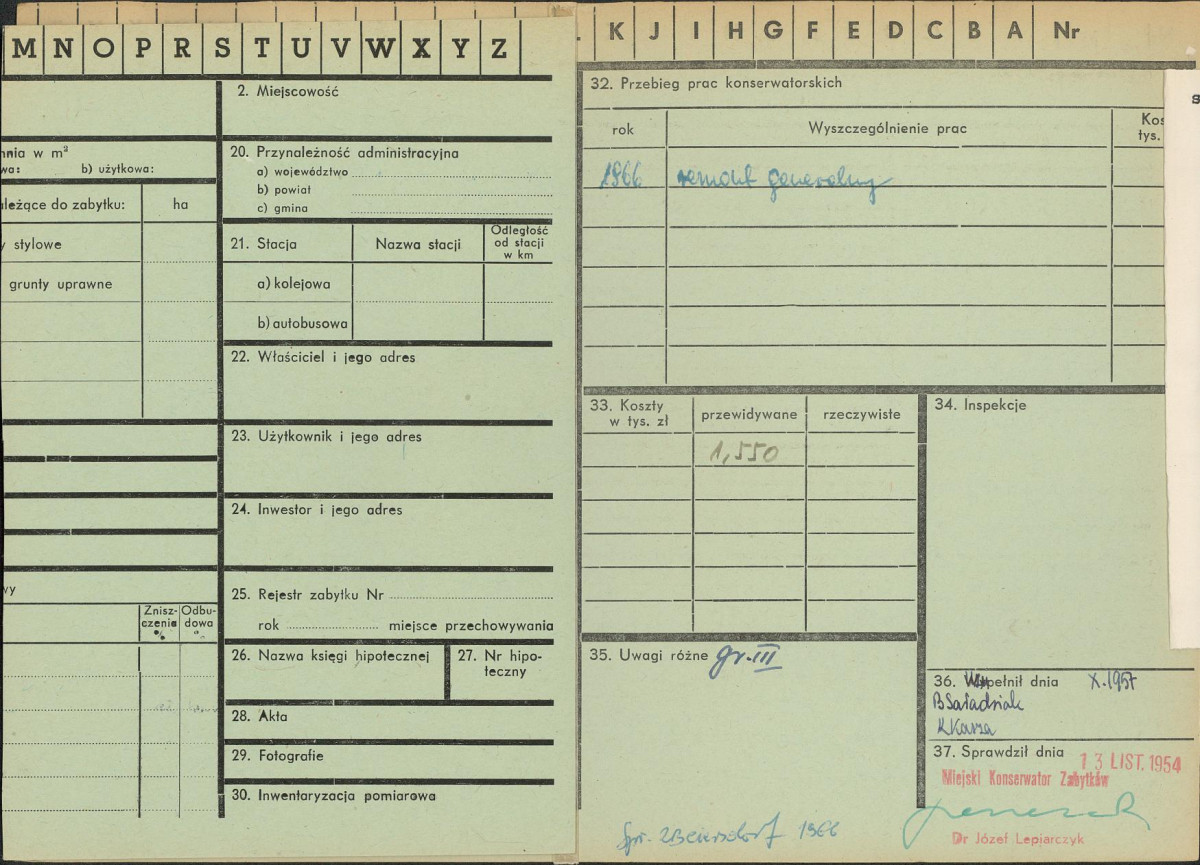 M N O P R S T U V W X Y Z
2. Miejscowość
w m³
b) użytkowa:
20. Przynależność administracyjna
a) województwo
b) powiat
c) gmina
do zabytku:
ha
stylowe
grunty uprawne
21. Stacja
Nazwa stacji
Odległość
od stacji
w km
a) kolejowa
b) autobusowa
22. Właściciel i jego adres
23. Użytkownik i jego adres
24. Inwestor i jego adres
25. Rejestr zabytku Nr
rok miejsce przechowywania
Znisz-
czenia
%
Odbu-
dowa
26. Nazwa księgi hipotecznej
27. Nr hipo-
teczny
28. Akta
29. Fotografie
30. Inwentaryzacja pomiarowa
K J I H G F E D C B A Nr
32. Przebieg prac konserwatorskich
rok
Wyszczególnienie prac
tys.
1966 remont generalny
33. Koszty
w tys. zł
przewidywane
rzeczywiste
1,550
34. Inspekcje
35. Uwagi różne gr. III
36. Wypełnił dnia X.1957
37. Sprawdził dnia
13 LIST. 1954
Miejski Konserwator Zabytków
Dr Józef Lepiarczyk
Spr. ZBeiersdorf 1966